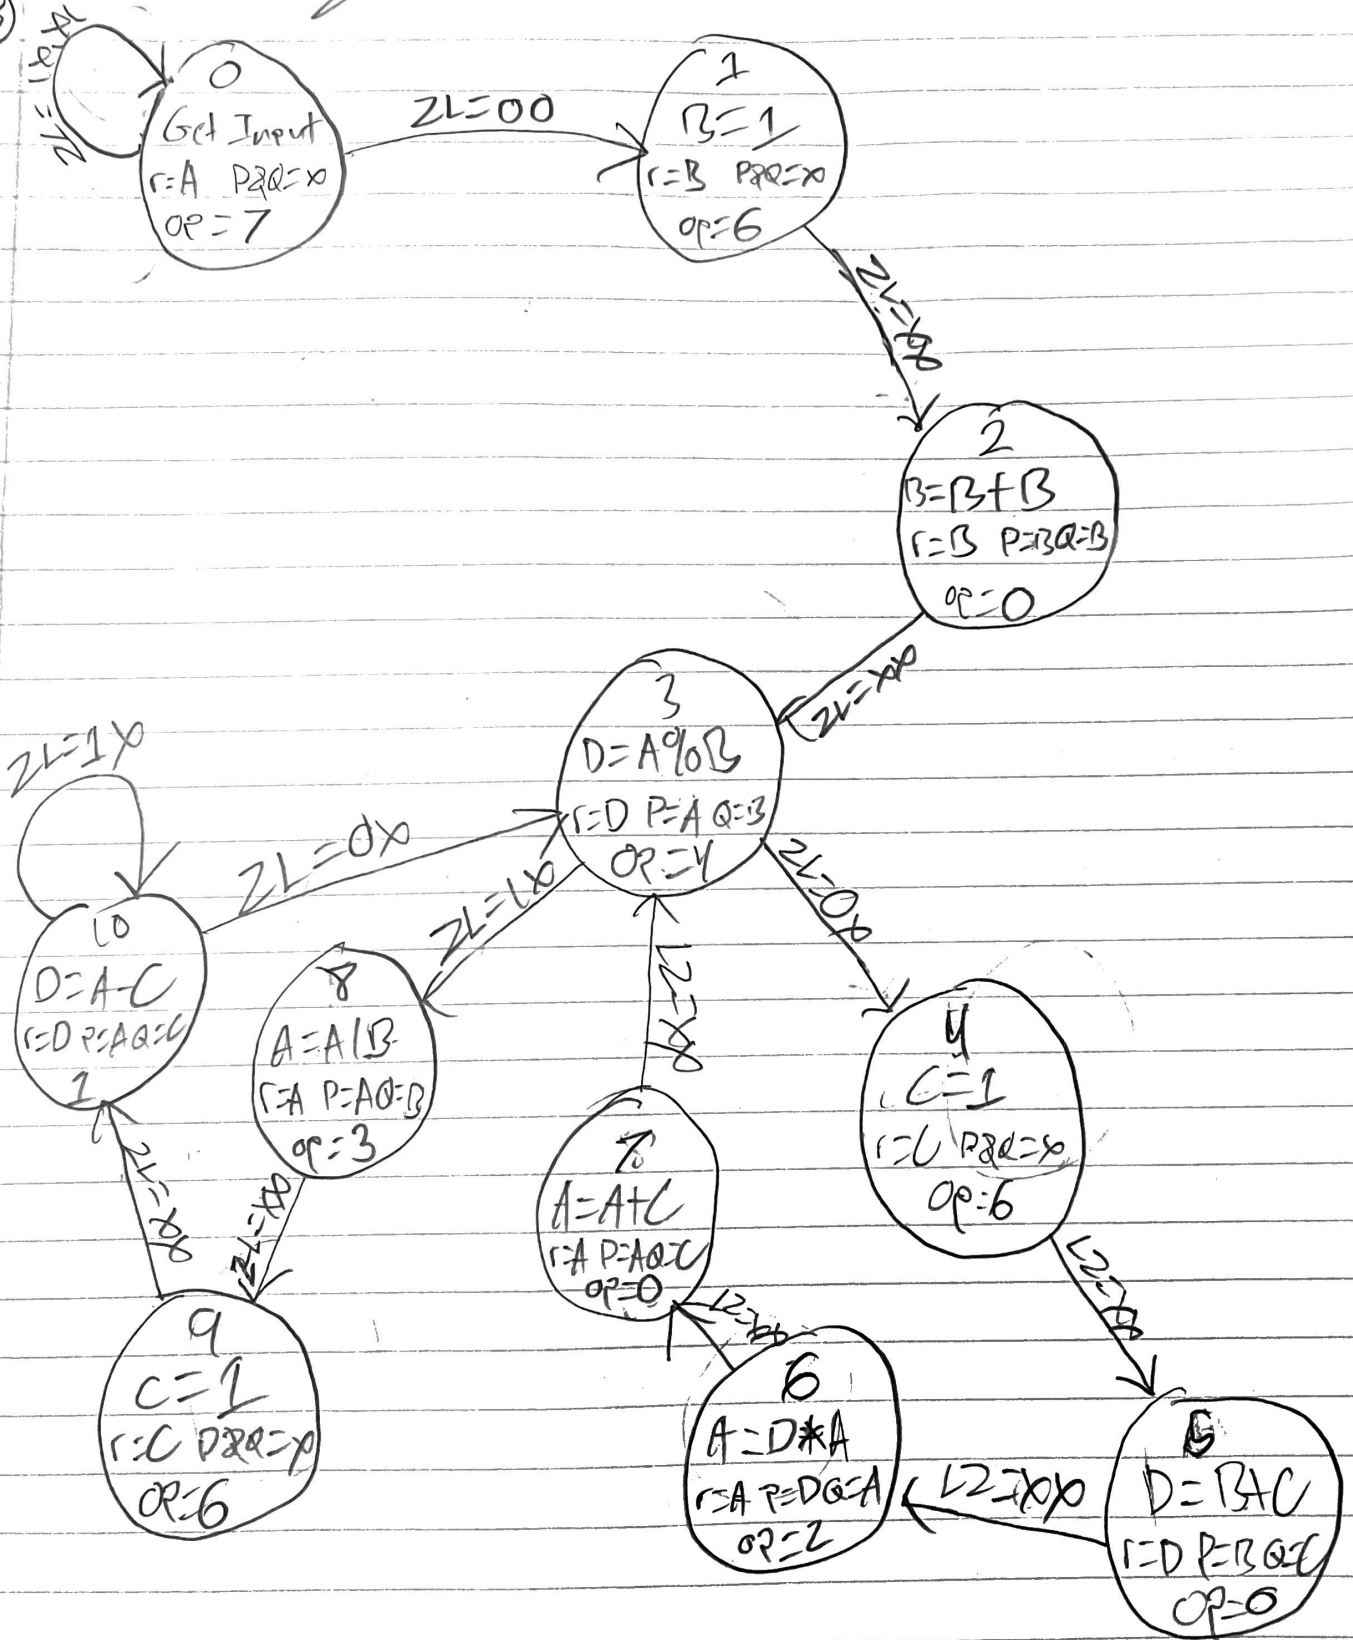 0
Get Input
r=A P&Q=x
op=7
ZL=00
1
B=1
r=B P&Q=x
op=6
ZL=xx
2
B=B+B
r=B P=B Q=B
op=0
ZL=xx
3
D=A%B
r=D P=A Q=B
OP=4
ZL=1X
ZL=0X
ZL=1X
ZL=0X
10
D=A-C
r=D P=A Q=C
1
8
A=A/B
r=A P=A Q=B
op=3
LZ=XX
4
C=1
r=C P&Q=x
Op=6
7
A=A+C
r=A P=A Q=C
op=0
ZL=XX
ZL=XX
LZ=XX
9
C=1
r=C P&Q=x
OP=6
LZ=XX
6
A=D*A
r=A P=D Q=A
op=2
LZ=XX
5
D=B+C
r=D P=B Q=C
OP=0